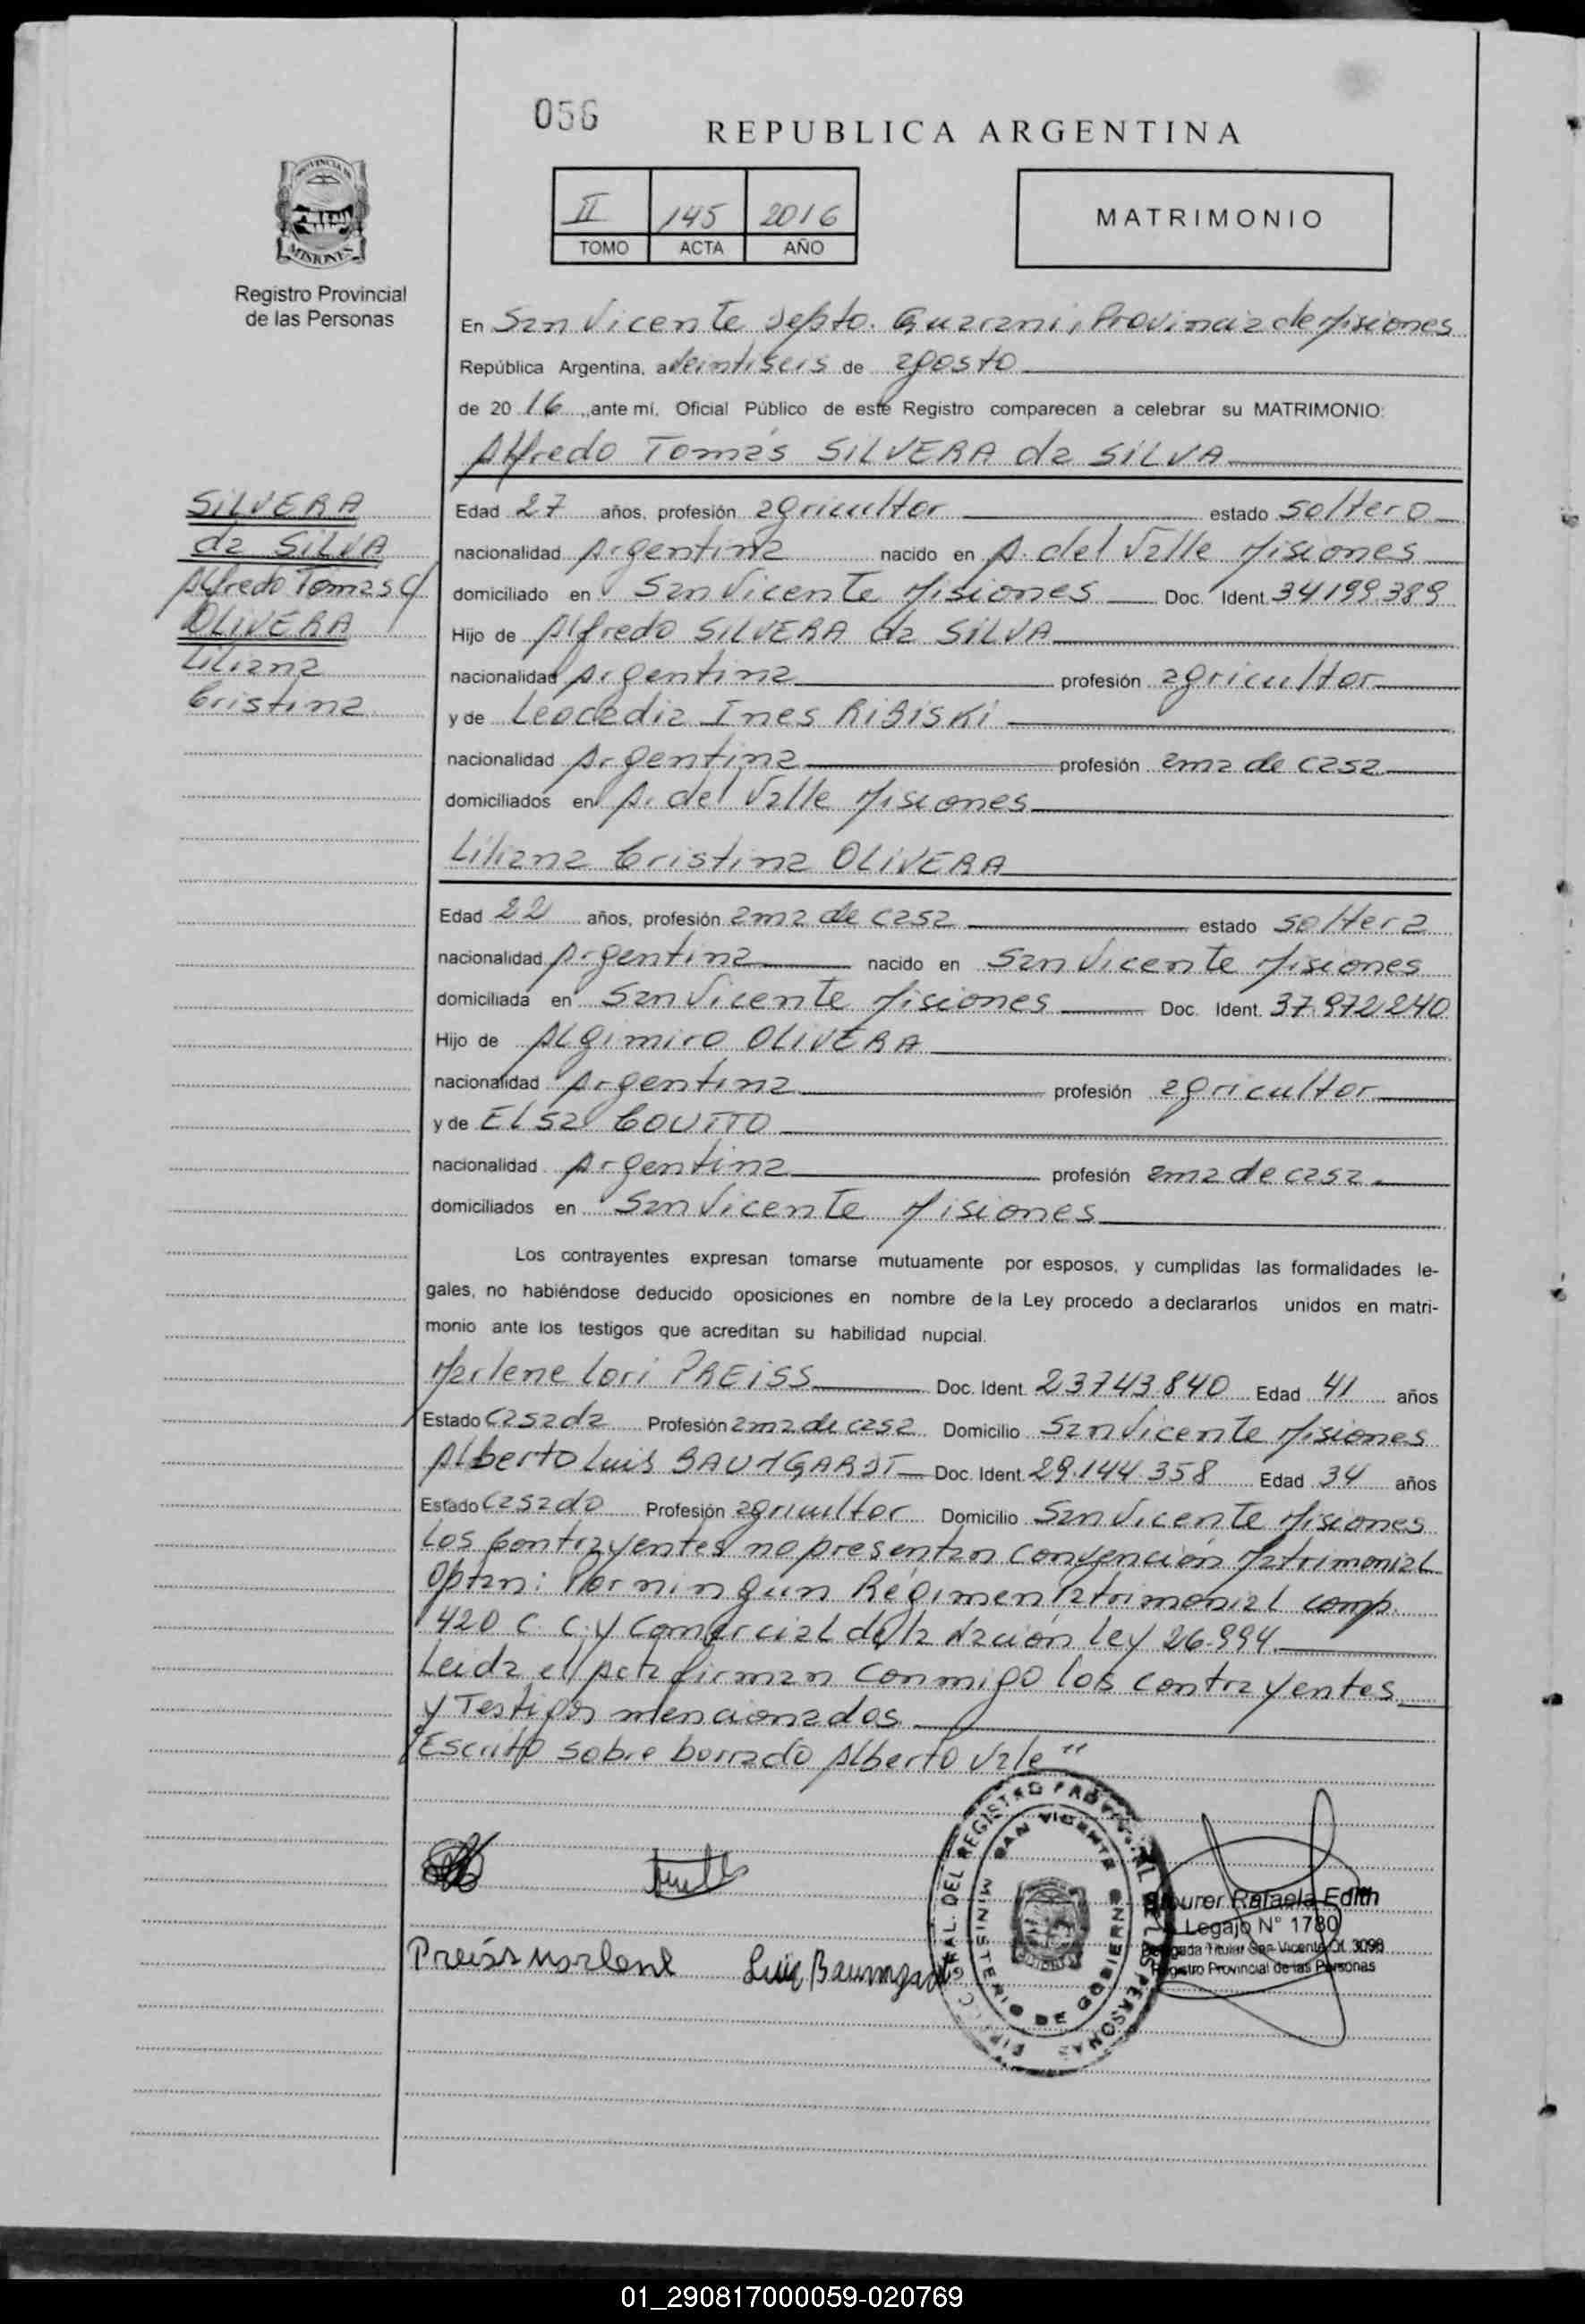 056
REPUBLICA ARGENTINA
II 145 2016
TOMO ACTA AÑO
MATRIMONIO
PROVINCIA DE
MISIONES
Registro Provincial
de las Personas
En San Vicente Depto. Guarani, Provincia de Misiones
República Argentina, a veintiseis de agosto
de 20 16, ante mí, Oficial Público de este Registro comparecen a celebrar su MATRIMONIO:
Alfredo Tomás SILVERA da SILVA
SILVERA
da SILVA
Alfredo Tomas c/
OLIVERA
Liliana
Cristina
Edad 27 años, profesión agricultor estado soltero
nacionalidad Argentina nacido en A. del Valle Misiones
domiciliado en San Vicente Misiones Doc. Ident. 34199389
Hijo de Alfredo SILVERA da SILVA
nacionalidad Argentina profesión agricultor
y de Leocadia Ines RIBISKI
nacionalidad Argentina profesión ama de casa
domiciliados en A. del Valle Misiones
Liliana Cristina OLIVERA
Edad 22 años, profesión ama de casa estado soltera
nacionalidad Argentina nacido en San Vicente Misiones
domiciliada en San Vicente Misiones Doc. Ident. 37.972240
Hijo de ALgimiro OLIVERA
nacionalidad Argentina profesión agricultor
y de ELsa COUTTO
nacionalidad Argentina profesión ama de casa
domiciliados en San Vicente Misiones
Los contrayentes expresan tomarse mutuamente por esposos, y cumplidas las formalidades le-
gales, no habiéndose deducido oposiciones en nombre de la Ley procedo a declararlos unidos en matri-
monio ante los testigos que acreditan su habilidad nupcial.
Marlene Lori PREISS Doc. Ident. 23743840 Edad 41 años
Estado Casada Profesión ama de casa Domicilio San Vicente Misiones
Alberto Luis BAUMGARDT Doc. Ident. 29.144.358 Edad 34 años
Estado Casado Profesión agricultor Domicilio San Vicente Misiones
Los Contrayentes no presentan convención Matrimonial
Optan: Por ningún Régimen Patrimonial comp.
420 C. C. y Comercial de la Nación Ley 26.994
Leida el Acta firman conmigo los contrayentes
y Testigos mencionados
"Escrito sobre borrado Alberto Vale"
Preiss Marlene Luis Baumgardt
GRAL. DEL REGISTRO PROVINCIAL DE LAS PERSONAS
SAN VICENTE
MINISTERIO DE GOBIERNO
Rafaela Edith
Legajo N° 1780
Titular San Vicente Of. 3098
Registro Provincial de las Personas
01_290817000059-020769